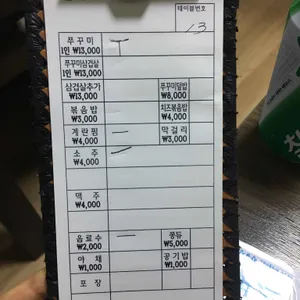 테이블번호
13
쭈꾸미
1인 ₩13,000
쭈꾸미삼겹살
1인 ₩13,000
삼겹살추가
₩13,000
쭈꾸미덮밥
₩8,000
볶음밥
₩3,000
치즈볶음밥
₩4,000
계란찜
₩4,000
막걸리
₩3,000
소주
₩4,000
맥주
₩4,000
음료수
₩2,000
쫑듀
₩5,000
야채
₩1,000
공기밥
₩1,000
포장